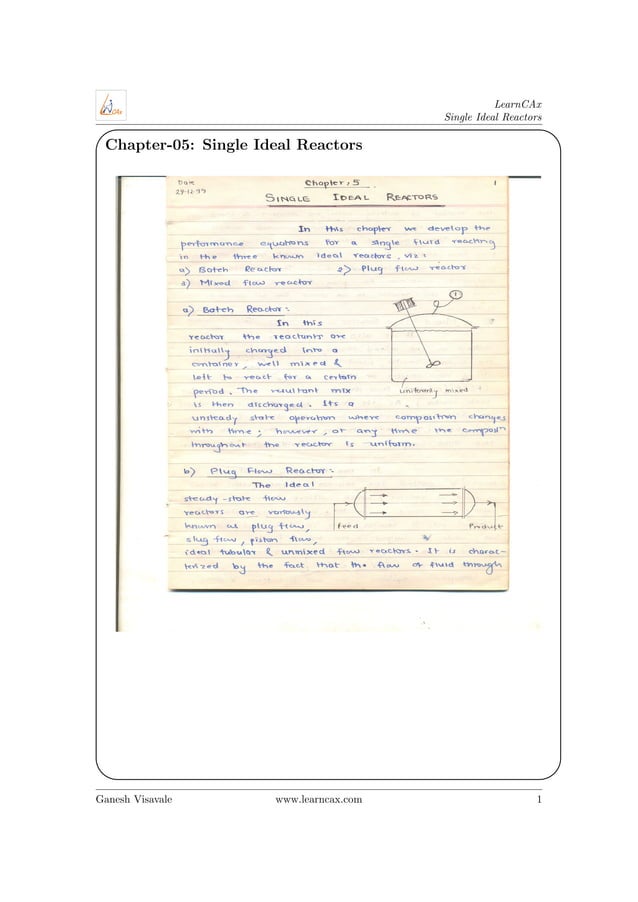 CAx
LearnCAx
Single Ideal Reactors
Chapter-05: Single Ideal Reactors
Date
29-12-99
Chapter: 5
1
SINGLE IDEAL REACTORS
In this chapter we develop the
performance equations for a single fluid reacting
in the three known ideal reactors, viz:
a) Batch Reactor 2) Plug flow reactor
3) Mixed flow reactor
a) Batch Reactor:-
In this
reactor the reactants are
initially charged into a
container, well mixed &
left to react for a certain
period. The resultant mix
is then discharged. Its a
unsteady state operation where composition changes
with time; however, at any time the composn
throughout the reactor is uniform.
uniformly mixed
b) Plug Flow Reactor:-
The Ideal
steady-state flow
reactors are variously
known as plug flow,
slug flow, piston flow,
ideal tubular & unmixed flow reactors. It is charac-
terized by the fact that the flow of fluid through
feed
Product
Ganesh Visavale
www.learncax.com
1